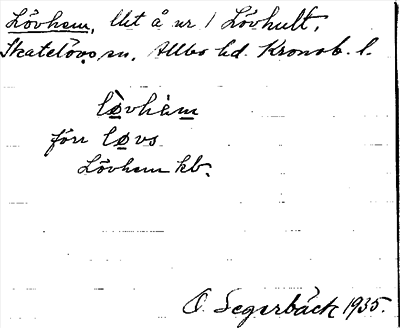 Lövhem, lht å nr 1 Lövhult.
Skatelövs sn. Allbo hd. Kronob. l.
lø̀vhèm
förr løvs
Lövhem kb.
O. Segerbäck 1935.